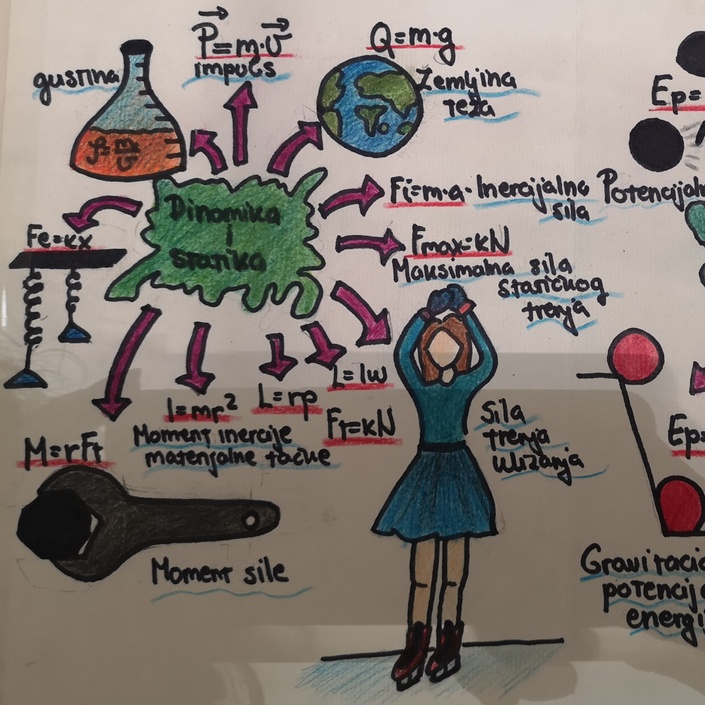 gustina
ρ=m/v
P⃗=m·v⃗
impuls
Q=m·g
Zemljina
teža
Ep=
Dinamika
i
statika
Fi=m·a·Inercijalna
sila
Potencijaln
Fe=kx
Fmax=kN
Maksimalna sila
statičkog
trenja
M=rFt
I=mr²
Moment inercije
materijalne tačke
L=rp
L=Iw
Ft=kN
Sila
trenja
klizanja
Moment sile
Ep=
Gravitacio
potencija
energij